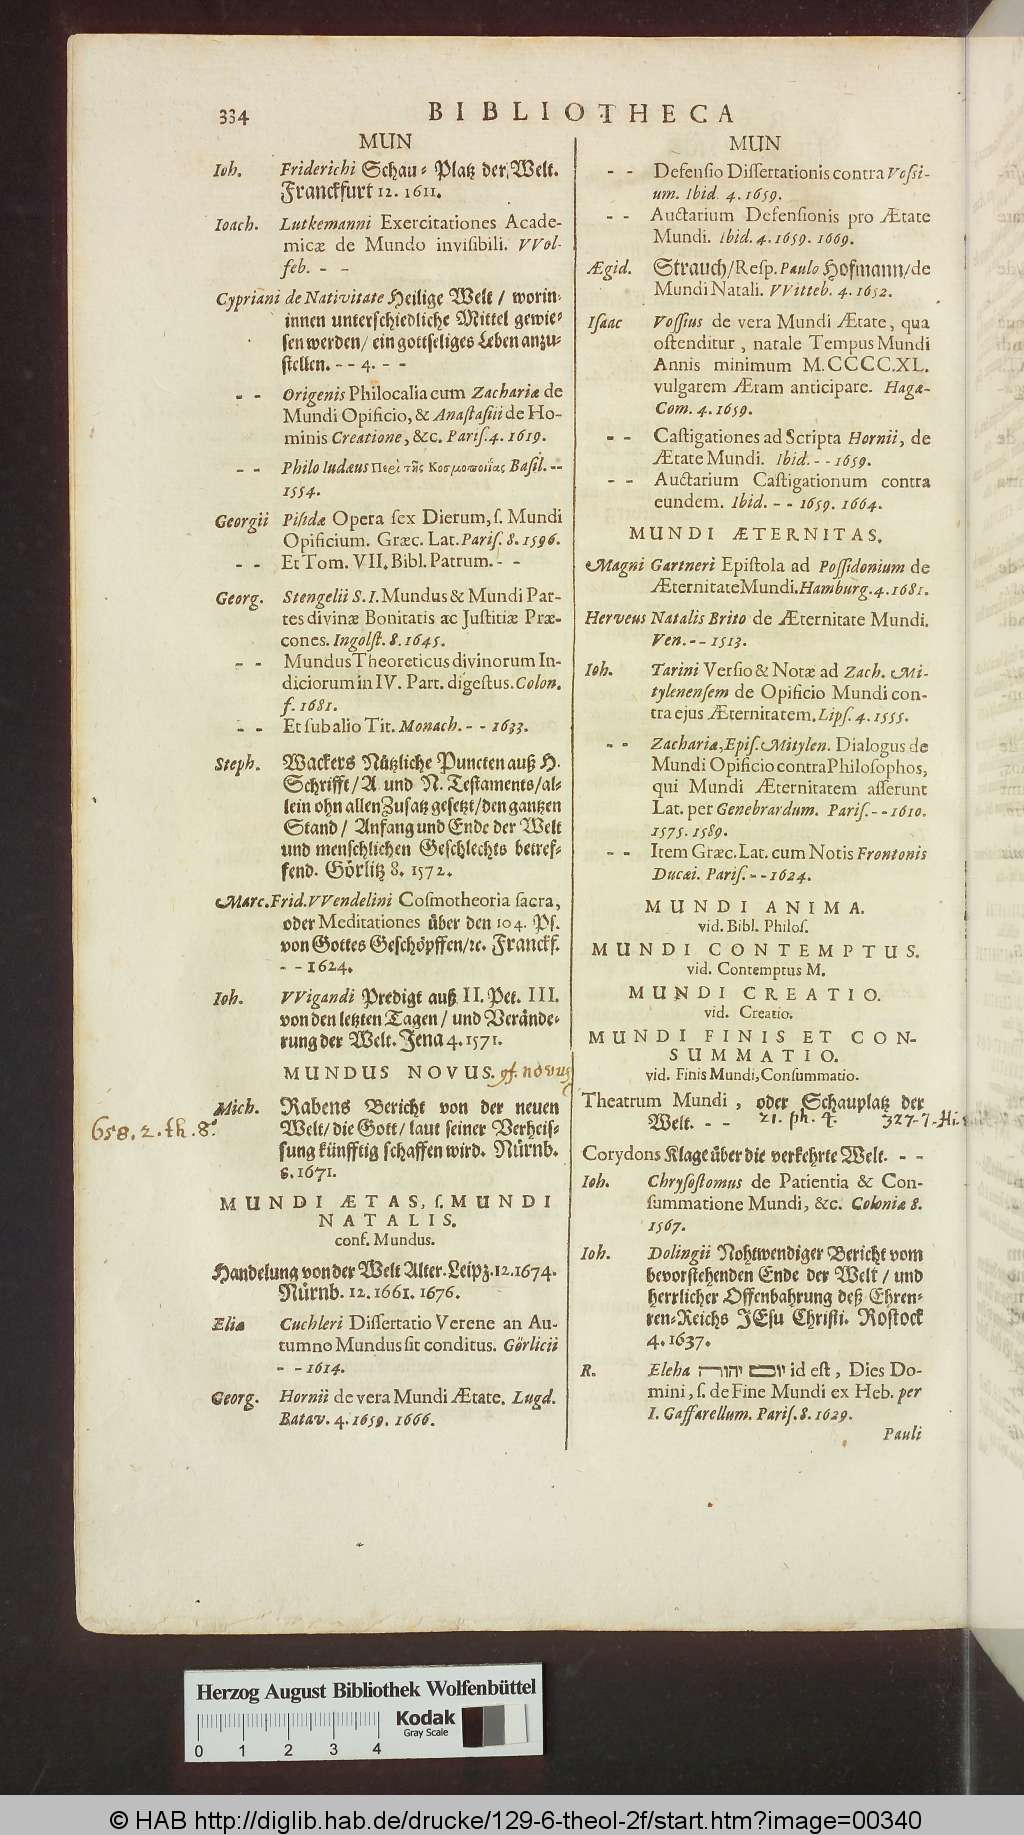 334
BIBLIOTHECA
MUN
Ioh. Friderichi Schau- Platz der Welt.
Franckfurt 12. 1611.
Ioach. Lutkemanni Exercitationes Acade-
micæ de Mundo invisibili. VVol-
feb. - -
Cypriani de Nativitate Heilige Welt / worin-
innen unterschiedliche Mittel gewie-
sen werden / ein gottseliges Leben anzu-
stellen. - - 4. - -
- - Origenis Philocalia cum Zachariæ de
Mundi Opificio, & Anastasii de Ho-
minis Creatione, &c. Paris. 4. 1619.
- - Philo Iudæus Περὶ τῆς Κοσμοποιΐας Basil. --
1554.
Georgii Pisidæ Opera sex Dierum, s. Mundi
Opificium. Græc. Lat. Paris. 8. 1596.
- - Et Tom. VII. Bibl. Patrum. - -
Georg. Stengelii S. I. Mundus & Mundi Par-
tes divinæ Bonitatis ac Justitiæ Præ-
cones. Ingolst. 8. 1645.
- - Mundus Theoreticus divinorum In-
diciorum in IV. Part. digestus. Colon.
f. 1681.
- - Et sub alio Tit. Monach. - - 1633.
Steph. Wackers Nützliche Puncten auß H.
Schrifft / A. und N. Testaments / al-
lein ohn allen Zusatz gesetzt / den gantzen
Stand / Anfang und Ende der Welt
und menschlichen Geschlechts betref-
fend. Görlitz 8. 1572.
Marc. Frid. VVendelini Cosmotheoria sacra,
oder Meditationes über den 104. Ps.
von Gottes Geschöpffen / ꝛc. Franckf.
- - 1624.
Ioh. VVigandi Predigt auß II. Pet. III.
von den letzten Tagen / und Verände-
rung der Welt. Jena 4. 1571.
MUNDUS NOVUS. cf. novus
Mich. Rabens Bericht von der neuen
658. 2. th. 8.
Welt / die Gott / laut seiner Verheis-
sung künfftig schaffen wird. Nürnb.
8. 1671.
MUNDI ÆTAS, s. MUNDI
NATALIS.
conf. Mundus.
Handelung von der Welt Alter. Leipz. 12. 1674.
Nürnb. 12. 1661. 1676.
Eliæ Cuchleri Dissertatio Verene an Au-
tumno Mundus sit conditus. Görlicii
- - 1614.
Georg. Hornii de vera Mundi Ætate. Lugd.
Batav. 4. 1659. 1666.
MUN
- - Defensio Dissertationis contra Vossi-
um. Ibid. 4. 1659.
- - Auctarium Defensionis pro Ætate
Mundi. Ibid. 4. 1659. 1669.
Ægid. Strauch / Resp. Paulo Hofmann / de
Mundi Natali. VVitteb. 4. 1652.
Isaac Vossius de vera Mundi Ætate, qua
ostenditur, natale Tempus Mundi
Annis minimum M. CCCC. XL.
vulgarem Ætam anticipare. Hagæ-
Com. 4. 1659.
- - Castigationes ad Scripta Hornii, de
Ætate Mundi. Ibid. - - 1659.
- - Auctarium Castigationum contra
eundem. Ibid. - - 1659. 1664.
MUNDI ÆTERNITAS.
Magni Gartneri Epistola ad Possidonium de
Æternitate Mundi. Hamburg. 4. 1681.
Herveus Natalis Brito de Æternitate Mundi.
Ven. - - 1513.
Ioh. Tarini Versio & Notæ ad Zach. Mi-
tylenensem de Opificio Mundi con-
tra ejus Æternitatem. Lips. 4. 1555.
- - Zachariæ, Epis. Mitylen. Dialogus de
Mundi Opificio contra Philosophos,
qui Mundi Æternitatem asserunt
Lat. per Genebrardum. Paris. - - 1610.
1575. 1589.
- - Item Græc. Lat. cum Notis Frontonis
Ducæi. Paris. - - 1624.
MUNDI ANIMA.
vid. Bibl. Philos.
MUNDI CONTEMPTUS.
vid. Contemptus M.
MUNDI CREATIO.
vid. Creatio.
MUNDI FINIS ET CON-
SUMMATIO.
vid. Finis Mundi, Consummatio.
Theatrum Mundi, oder Schauplatz der
Welt. - - 21. ph. 4. 327-7-Hi
Corydons Klage über die verkehrte Welt. - -
Ioh. Chrysostomus de Patientia & Con-
summatione Mundi, &c. Coloniæ 8.
1567.
Ioh. Dolingii Nohtwendiger Bericht vom
bevorstehenden Ende der Welt / und
herrlicher Offenbahrung deß Ehren-
ren-Reichs JEsu Christi. Rostock
4. 1637.
R. Eleha יום יהוה id est, Dies Do-
mini, s. de Fine Mundi ex Heb. per
I. Gaffarellum. Paris. 8. 1629.
Pauli
Herzog August Bibliothek Wolfenbüttel
Kodak
Gray Scale
0 1 2 3 4
© HAB http://diglib.hab.de/drucke/129-6-theol-2f/start.htm?image=00340